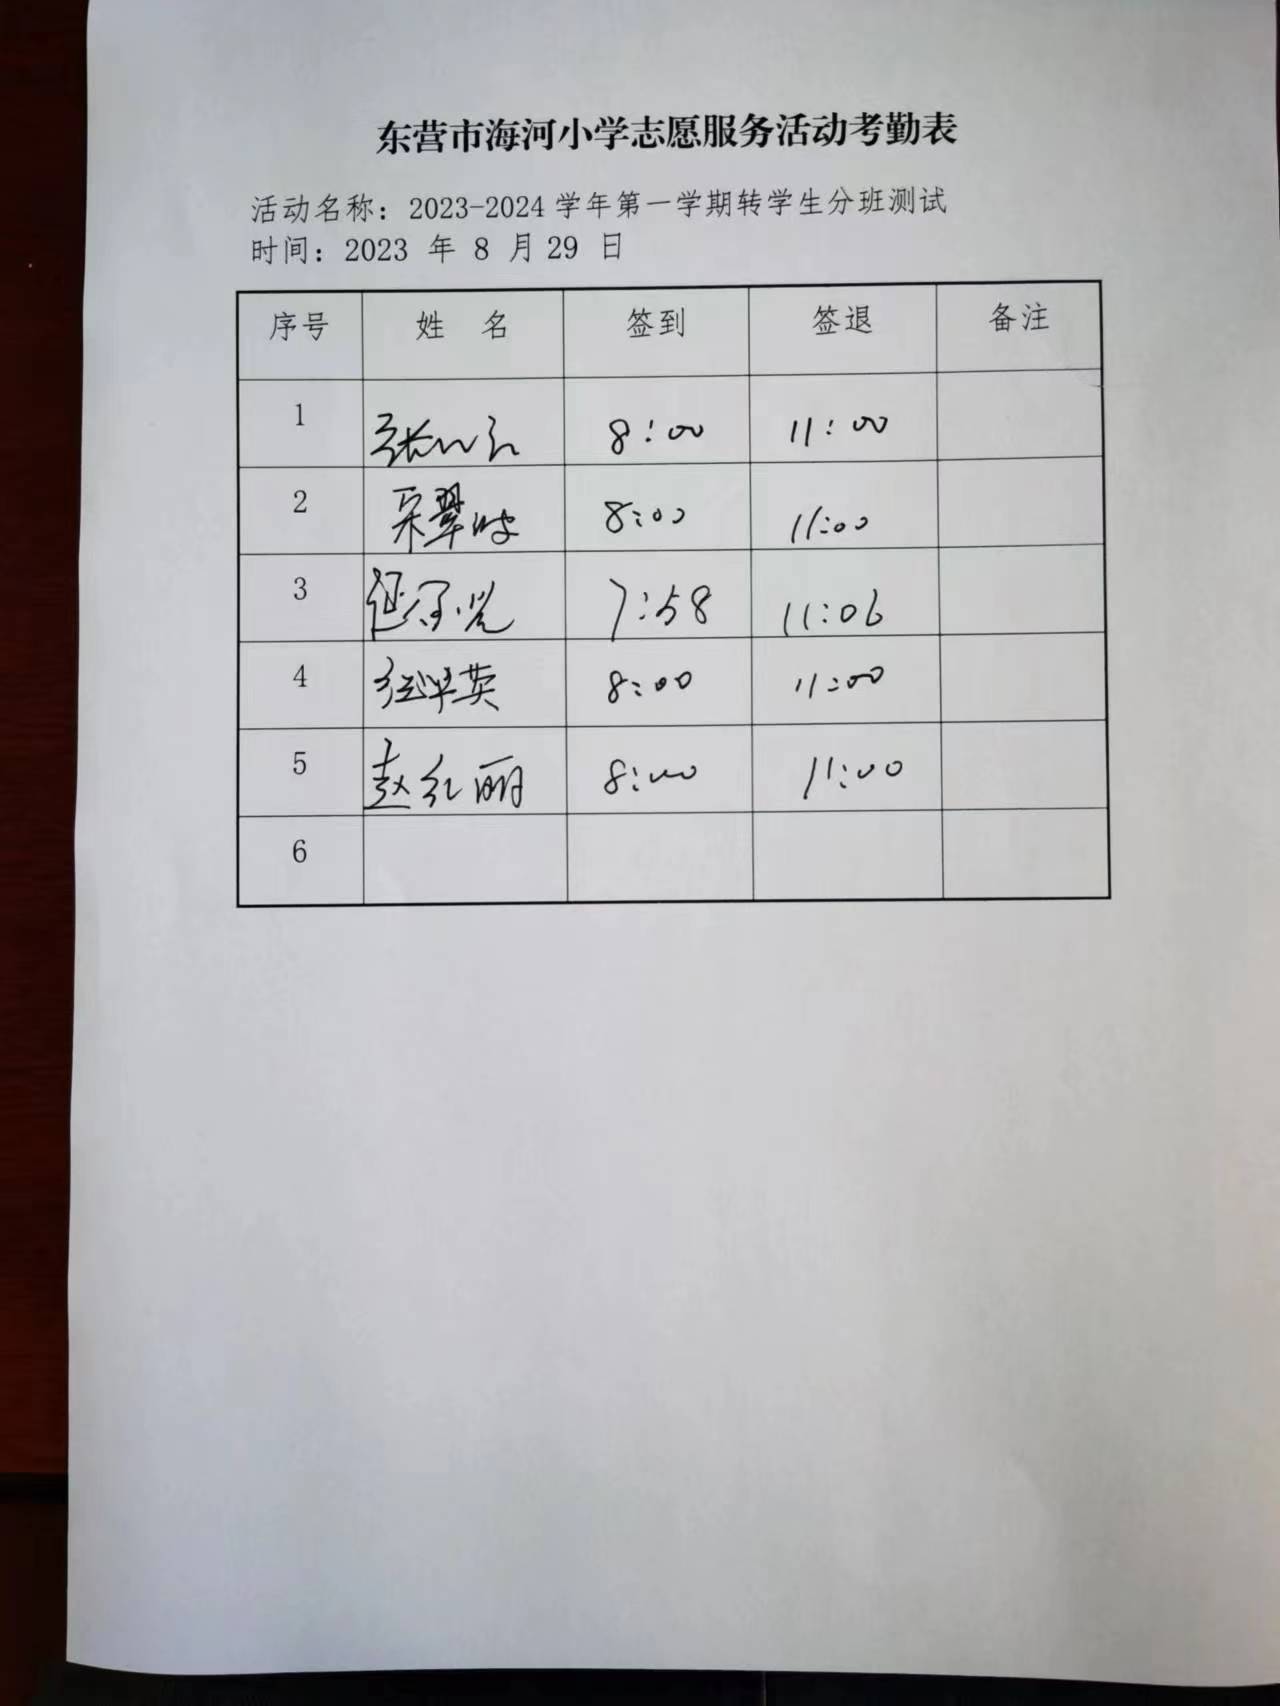 东营市海河小学志愿服务活动考勤表
活动名称：2023-2024学年第一学期转学生分班测试
时间：2023 年 8 月 29 日
序号 姓 名 签到 签退 备注
1 8:00 11:00
2 8:00 11:00
3 7:58 11:06
4 8:00 11:00
5 赵红丽 8:00 11:00
6